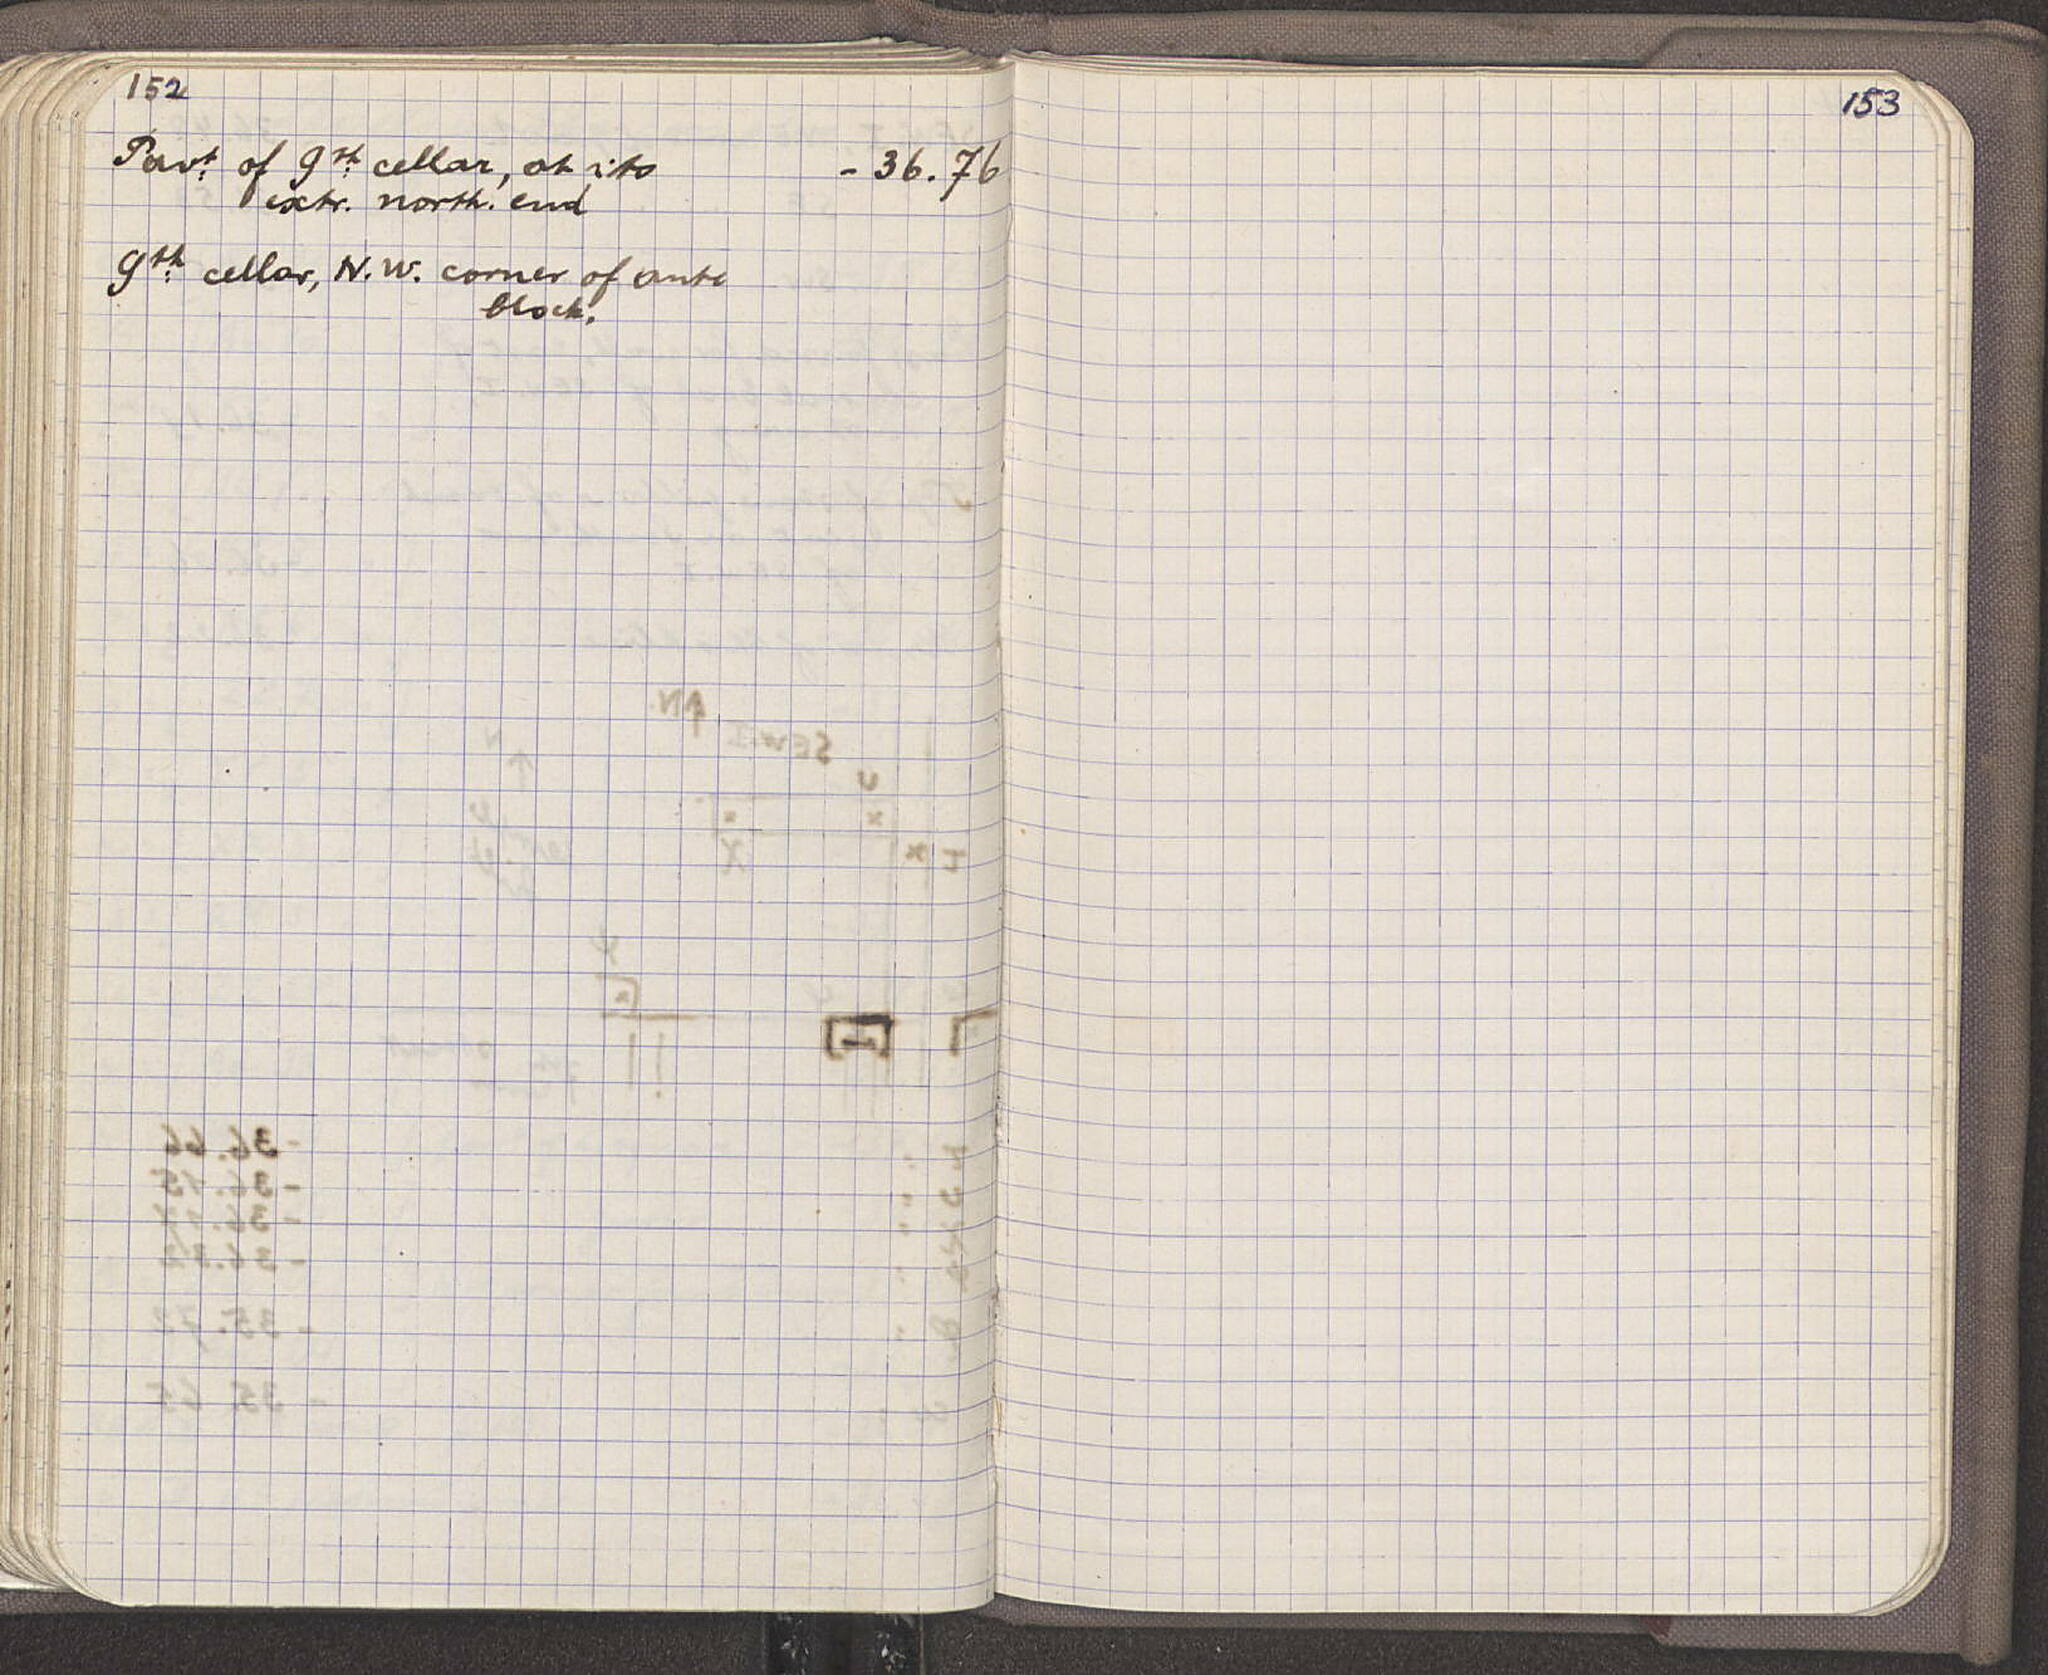 152
Pavt. of 9th. cellar, at its - 36.76
extr. north. end
9th. cellar, N.W. corner of ante
block.
153